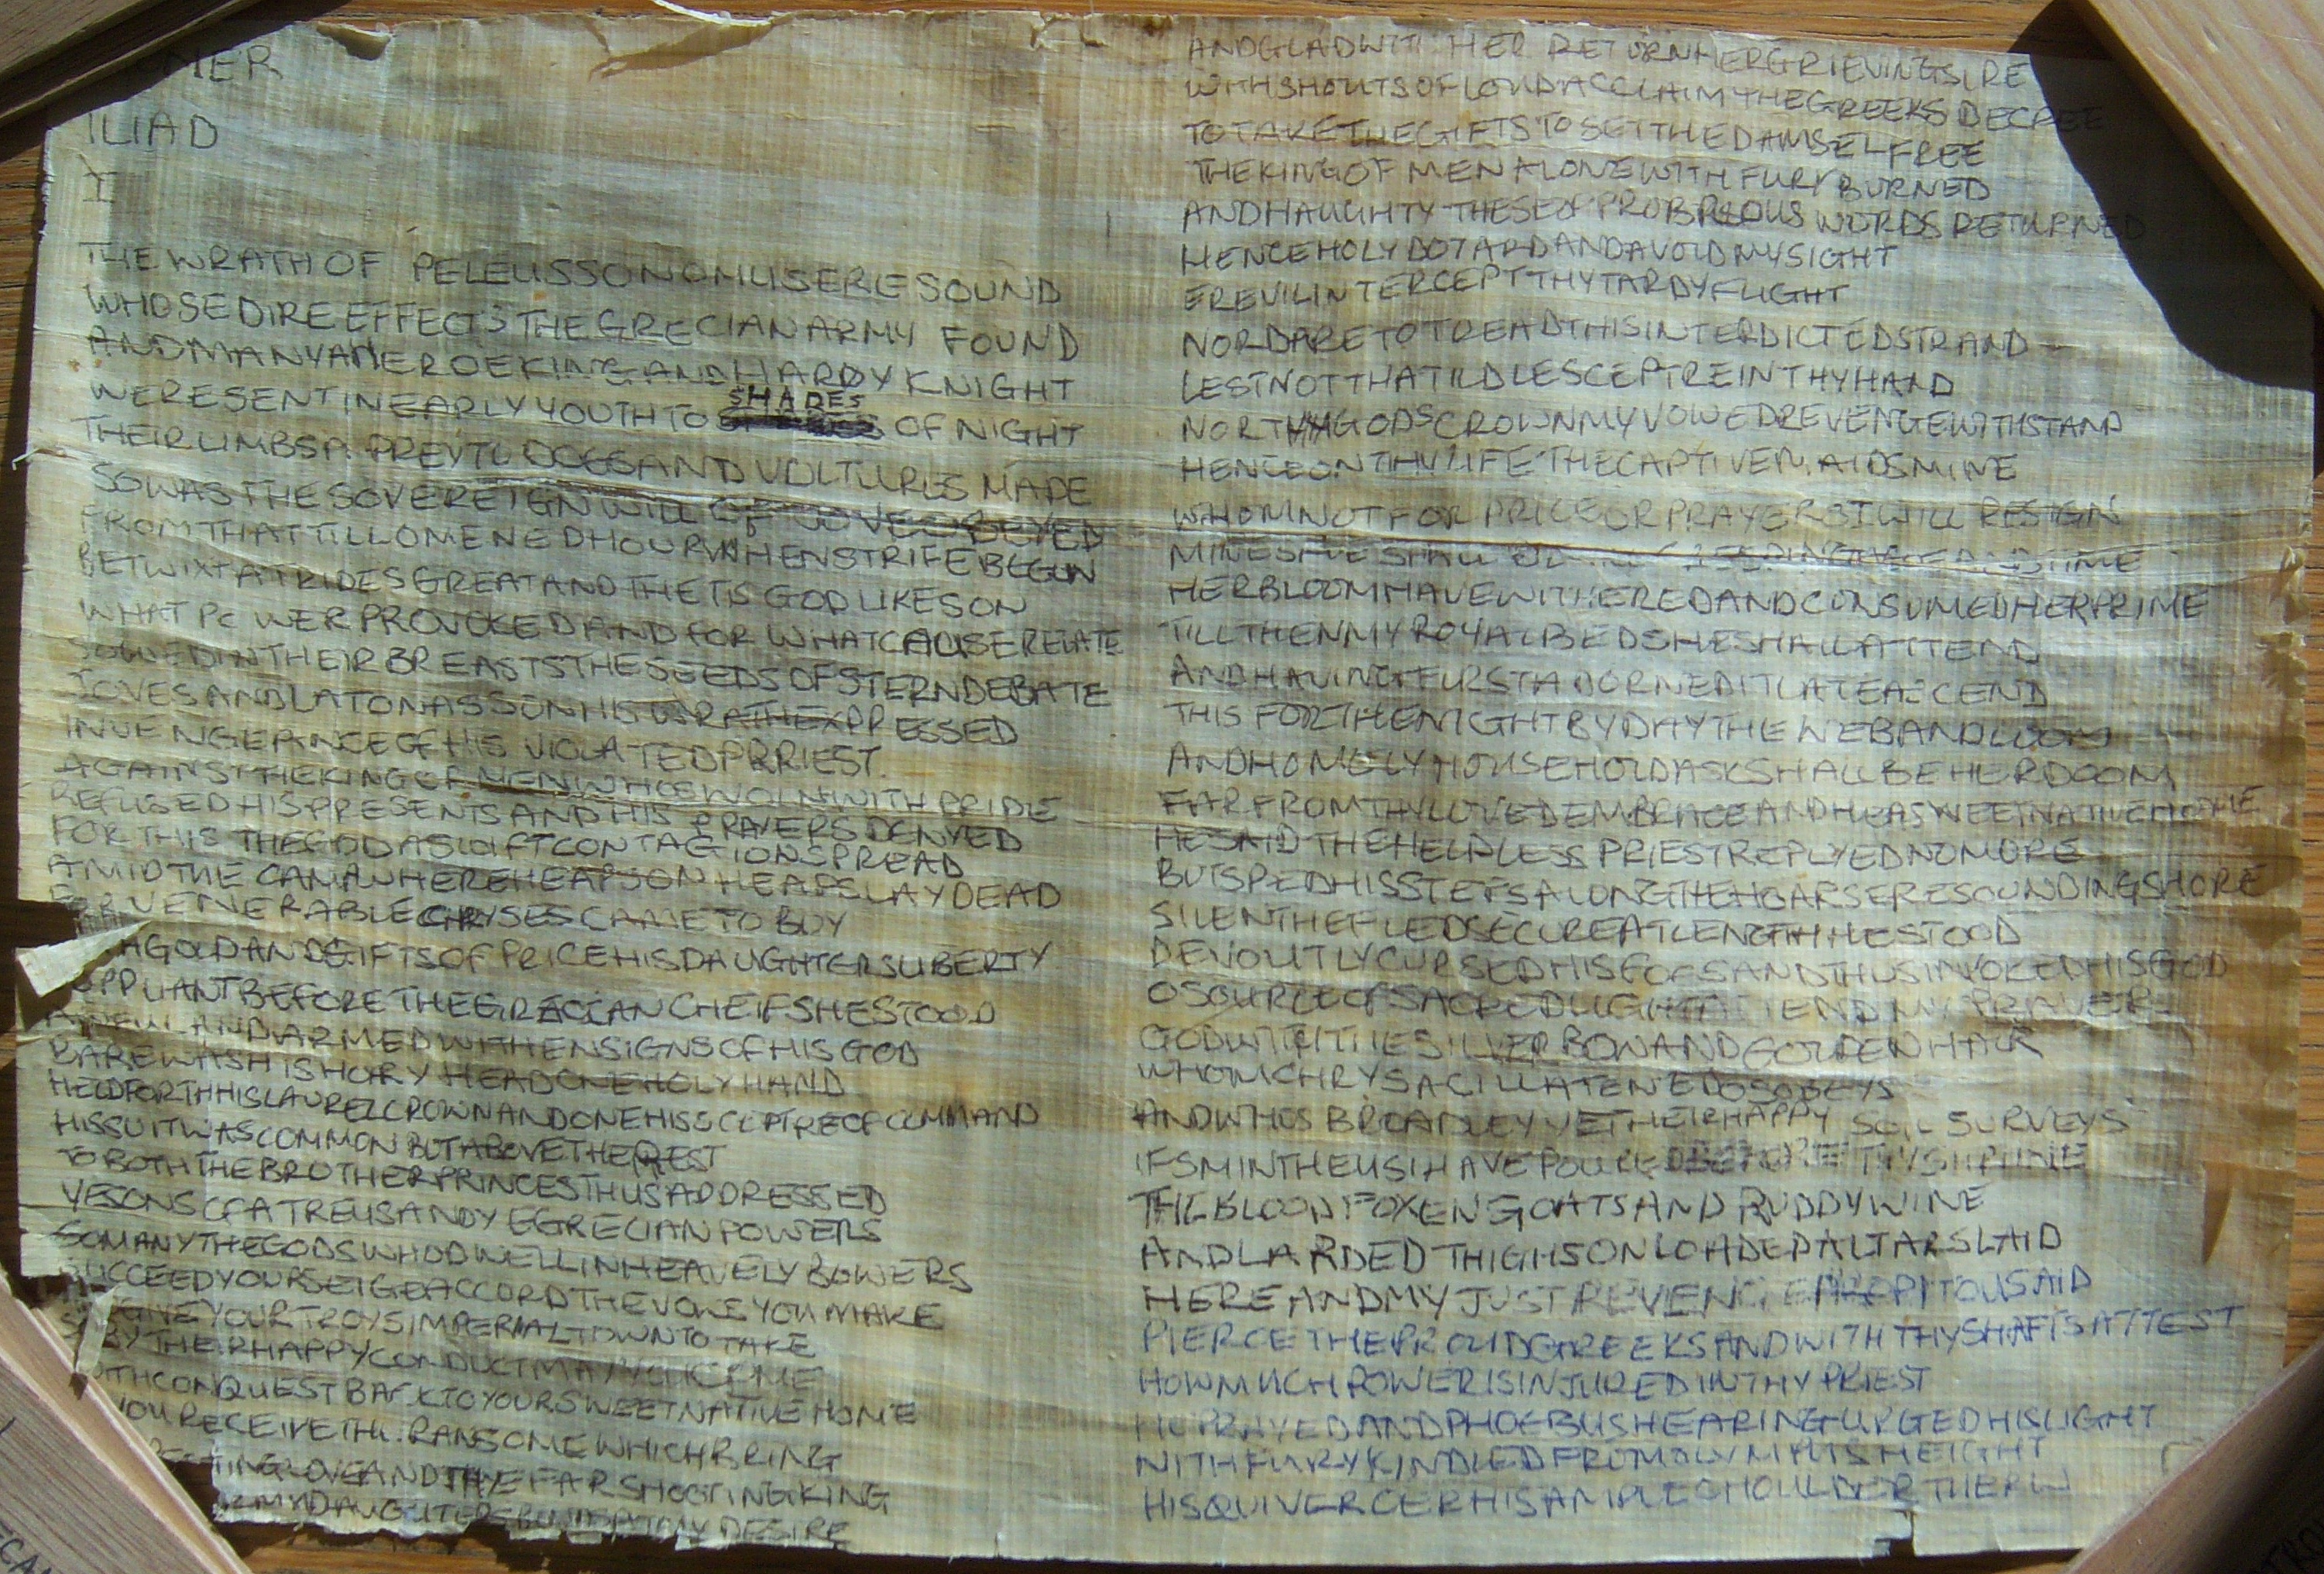 MER
ILIAD
I
THE WRATH OF PELEUSSONOMUSERESOUND
WHOSEDIRE EFFECTS THE GRECIANARMY FOUND
ANDMANYAHEROEKINGANDHARDY KNIGHT
WERESENTINEARLYYOUTHTO SHADES OF NIGHT
THEIRLIMBSA PREYTO DOGSANDVULTURES MADE
SOWASTHESOVEREIGNWILL OF JOVEOBEYED
FROMTHATILLOMENEDHOURWHENSTRIFEBEGUN
BETWIXTATRIDESGREATANDTHETISGODLIKESON
WHAT POWERPROVOKEDANDFOR WHATCAUSERELATE
SOWEDINTHEIRBREASTSTHESEEDSOFSTERNDEBATE
JOVESANDLATONASSONHISWRATHEXPRESSED
INVENGEANCEOFHIS VIOLATEDPRRIEST
AGAINSTTHEKINGOFMENWHOSWOLNWITHPRIDE
REFUSEDHISPRESENTSANDHIS PRAYERSDENYED
FORTHIS THEGODASWIFTCONTAGIONSPREAD
AMIDTHE CAMPWHEREHEAPSONHEAPSLAYDEAD
FORVENERABLECHRYSESCAMETO BUY
HGOLDANDGIFTSOFPRICEHISDAUGHTERSLIBERTY
PPLIANTBEFORETHEGRECIANCHEIFSHESTOOD
AWFULANDARMEDWITHENSIGNSOFHISGOD
BAREWASHISHORY HEADONEHOLYHAND
HELDFORTHHISLAURELCROWNANDONEHISSCEPTREOFCOMMAND
HISSUITWASCOMMONBUTABOVETHEREST
TOBOTHTHEBROTHERPRINCESTHUSADDRESSED
YESONSOFATREUSANDYEGRECIANPOWERS
SOMANYTHEGODSWHODWELLINHEAVELYBOWERS
SUCCEEDYOURSEIGEACCORDTHEVOWSYOUMAKE
GIVEYOURTROYSIMPERIALTOWNTOTAKE
BYTHEIRHAPPYCONDUCTMAYYOUCOME
ITHCONQUESTBACKTOYOURSWEETNATIVEHOME
YOURECEIVETHE RANSOMEWHICHBRING
ECTINGJOVEANDTHEFARSHOOTINGKING
MYDAUGHTERS DESIRE
ANDGLADWITH HER RETURNHERGRIEVINGSIRE
WITHSHOUTSOFLOUDACCLAIMTHEGREEKSDECREE
TOTAKETHEGIFTSTOSETTHEDAMSELFREE
THEKINGOFMENALONEWITHFURYBURNED
ANDHAUGHTY THESEOPPROBRIOUS WORDSRETURNED
HENCEHOLYDOTARDANDAVOIDMYSIGHT
EREVILINTERCEPTTHYTARDYFLIGHT
NORDARETOTREADTHISINTERDICTEDSTRAND
LESTNOTTHATIDLESCEPTREINTHYHAND
NORTHYGODSCROWNMYVOWEDREVENGEWITHSTAND
HENCEONTHYLIFETHECAPTIVEMAIDSMINE
WHOMNOTFOR PRICEORPRAYERSIWILL RESIGN
MINESHESHALL TIME
HERBLOOMHAVEWITHEREDANDCONSUMEDHERPRIME
TILLTHENMYROYALBEDSHESHALLATTEND
ANDHAVINGFIRSTADORNEDITLATEASCEND
THIS FORTHENIGHTBYDAYTHEWEBANDLOOM
ANDHOMELYHOUSEHOLDASKSHALLBEHERDOOM
FARFROMTHYLOVEDEMBRACEANDHEASWEETNATIVEHOME
HESAID THEHELPLESSPRIESTREPLYEDNOMORE
BUTSPEDHISSTEPSALONGTHEHOARSERESOUNDINGSHORE
SILENTHEFLEDSECUREATLENGTHHESTOOD
DEVOUTLYCURSEDHISFOESANDTHUSINVOKEDHISGOD
OSOURCEOFSACREDLIGHTATTENDMYPRAYER
GODWITHTHESILVERBOWANDGOLDENHAIR
WHOMCHRYSACILLATENEDOSOBEYS
ANDWHOSBROADEYETHEIRHAPPY SOIL SURVEYS
IFSMINTHEUSIHAVEPOUREDBEFORE THYSHRINE
THEBLOODOFOXENGOATSAND RUDDYWINE
ANDLARDEDTHIGHSONLOADEDALTARSLAID
HEREANDMYJUSTREVENGEPROPITOUSAID
PIERCETHEPROUDGREEKSANDWITHTHYSHAFTSATTEST
HOWMUCHPOWERISINJUREDINTHY PRIEST
HEPRAYEDANDPHOEBUSHEARINGURGEDHISLIGHT
WITHFURYKINDLEDFROMOLYMPUSHEIGHT
HISQUIVEROERHISAMPLESHOULDERTHREW